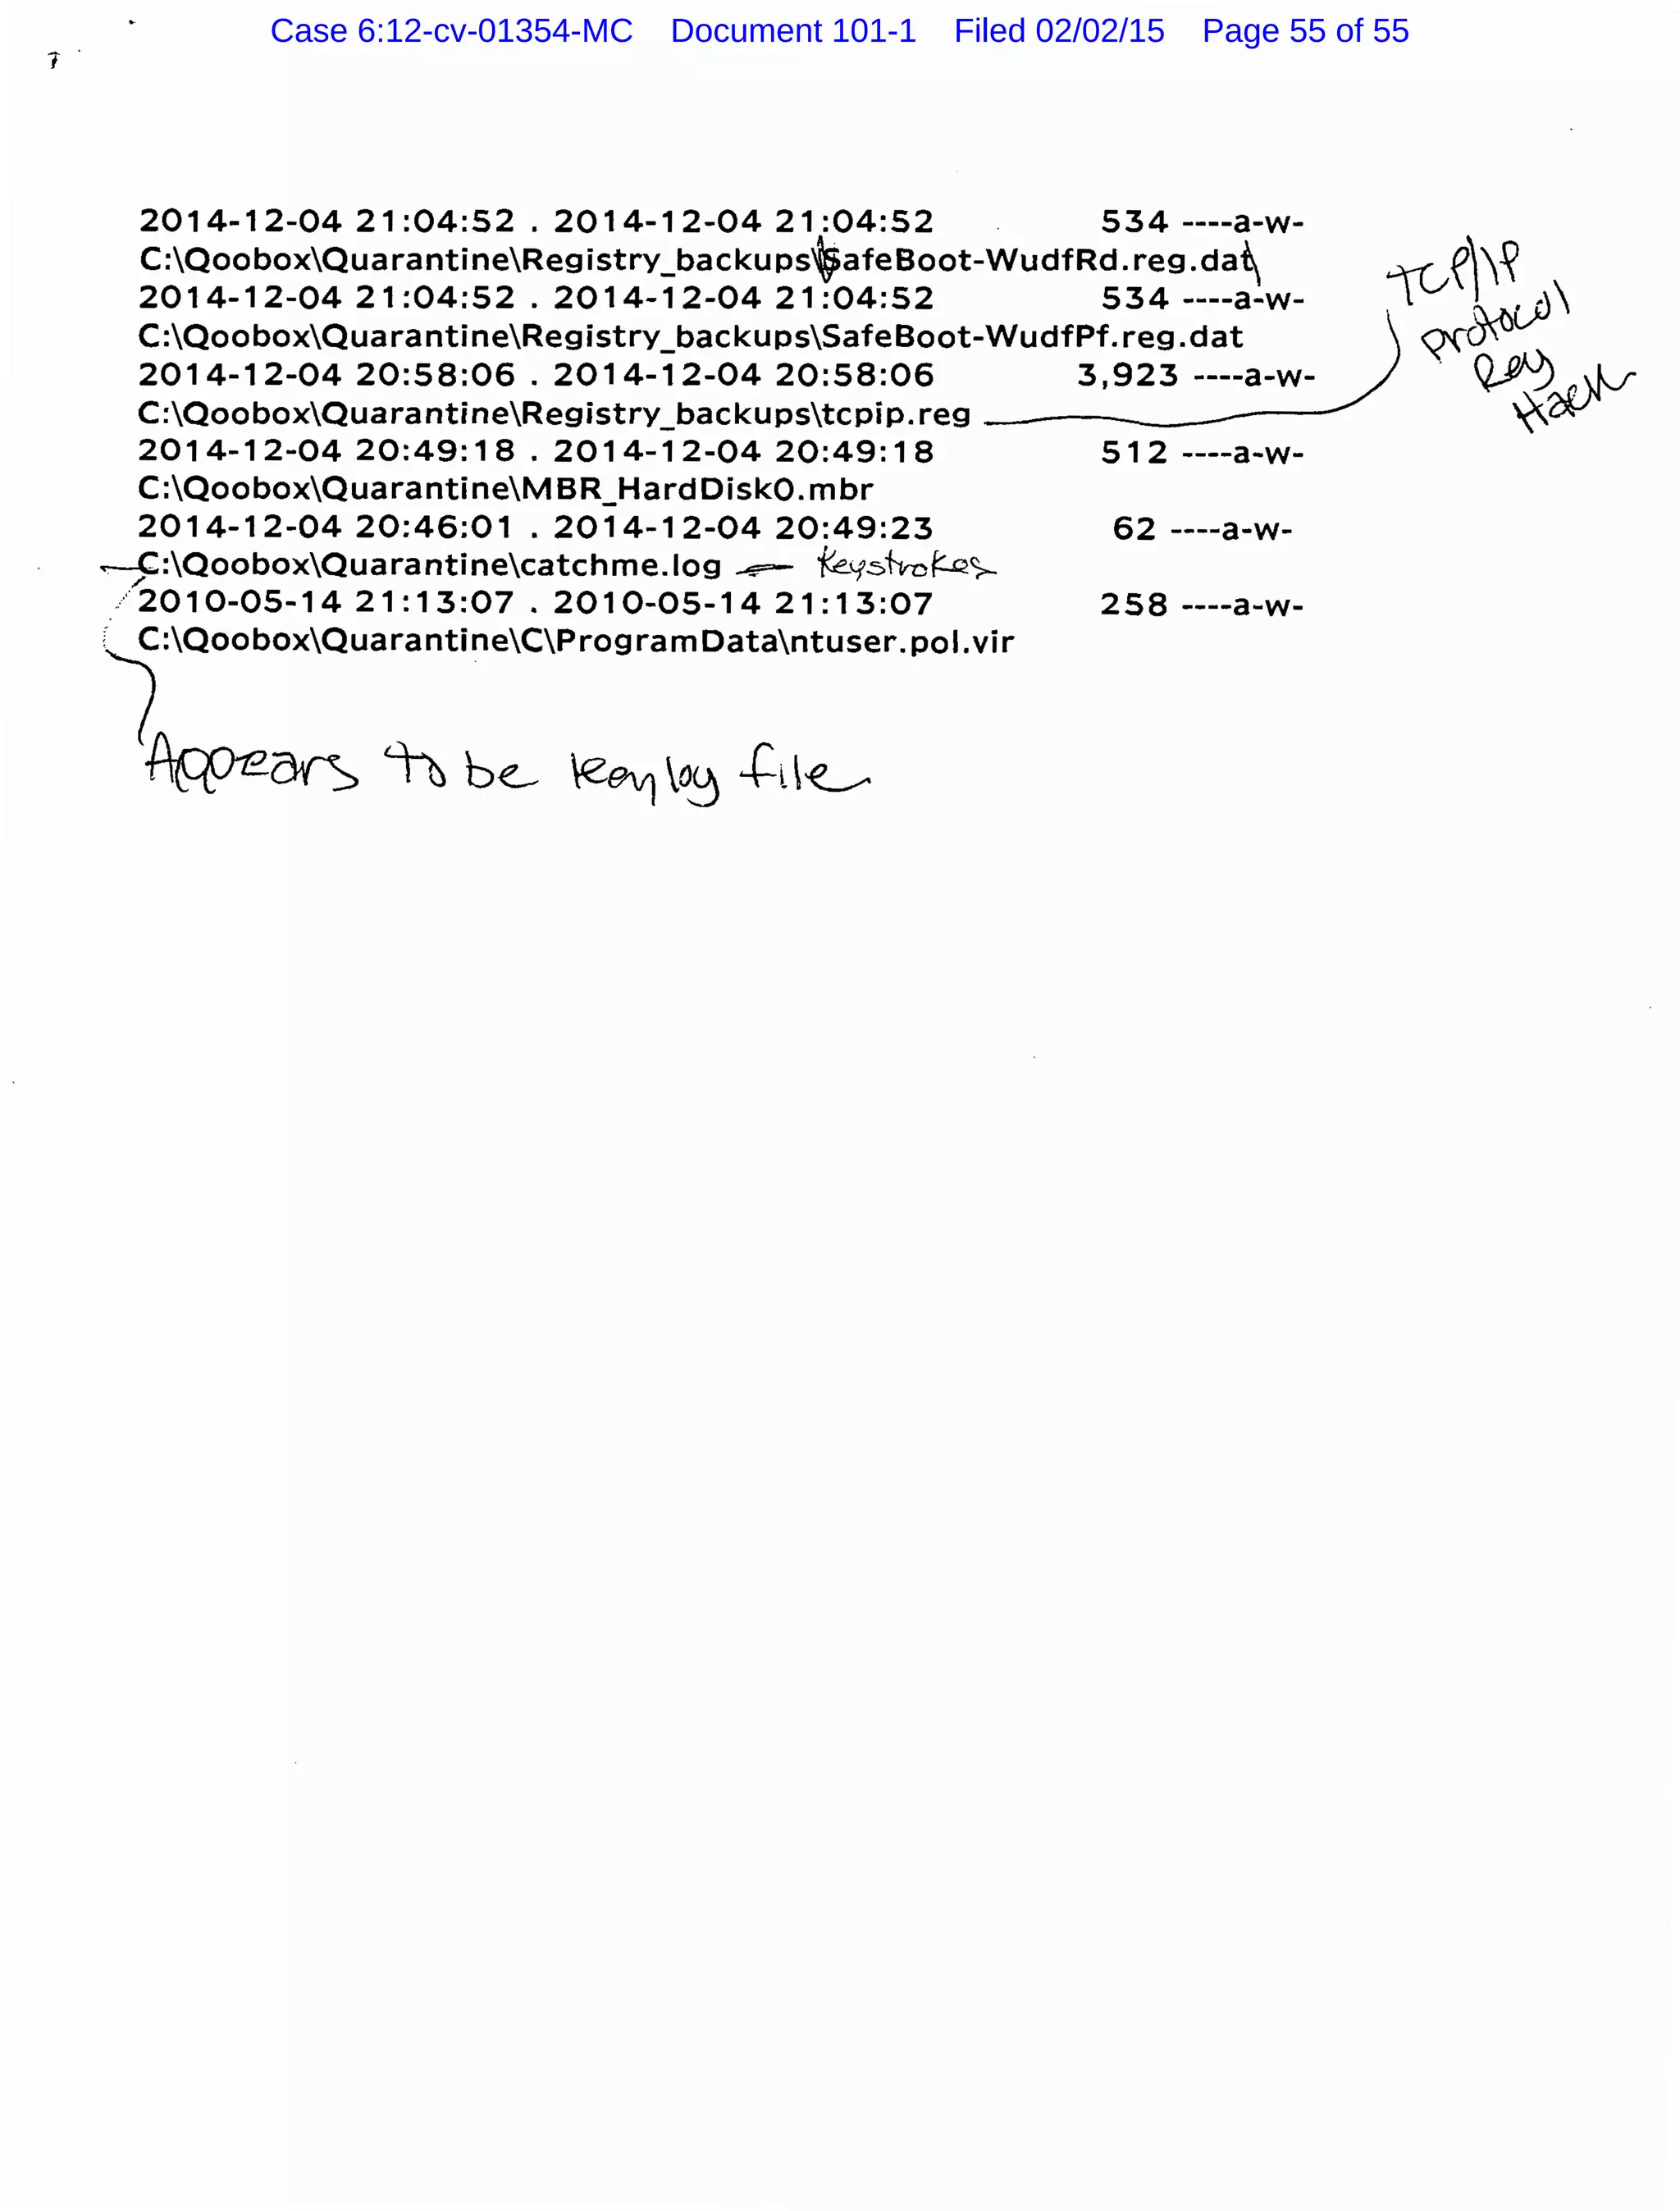 Case 6:12-cv-01354-MC Document 101-1 Filed 02/02/15 Page 55 of 55
2014-12-04 21:04:52 . 2014-12-04 21:04:52 534 ----a-w-
C:\Qoobox\Quarantine\Registry_backups\SafeBoot-WudfRd.reg.dat
2014-12-04 21:04:52 . 2014-12-04 21:04:52 534 ----a-w-
C:\Qoobox\Quarantine\Registry_backups\SafeBoot-WudfPf.reg.dat
2014-12-04 20:58:06 . 2014-12-04 20:58:06 3,923 ----a-w-
C:\Qoobox\Quarantine\Registry_backups\tcpip.reg
TCP/IP
Protocol
Reg
Hack
2014-12-04 20:49:18 . 2014-12-04 20:49:18 512 ----a-w-
C:\Qoobox\Quarantine\MBR_HardDisk0.mbr
2014-12-04 20:46:01 . 2014-12-04 20:49:23 62 ----a-w-
C:\Qoobox\Quarantine\catchme.log Keystrokes
2010-05-14 21:13:07 . 2010-05-14 21:13:07 258 ----a-w-
C:\Qoobox\Quarantine\C\ProgramData\ntuser.pol.vir
Appears to be keylog file